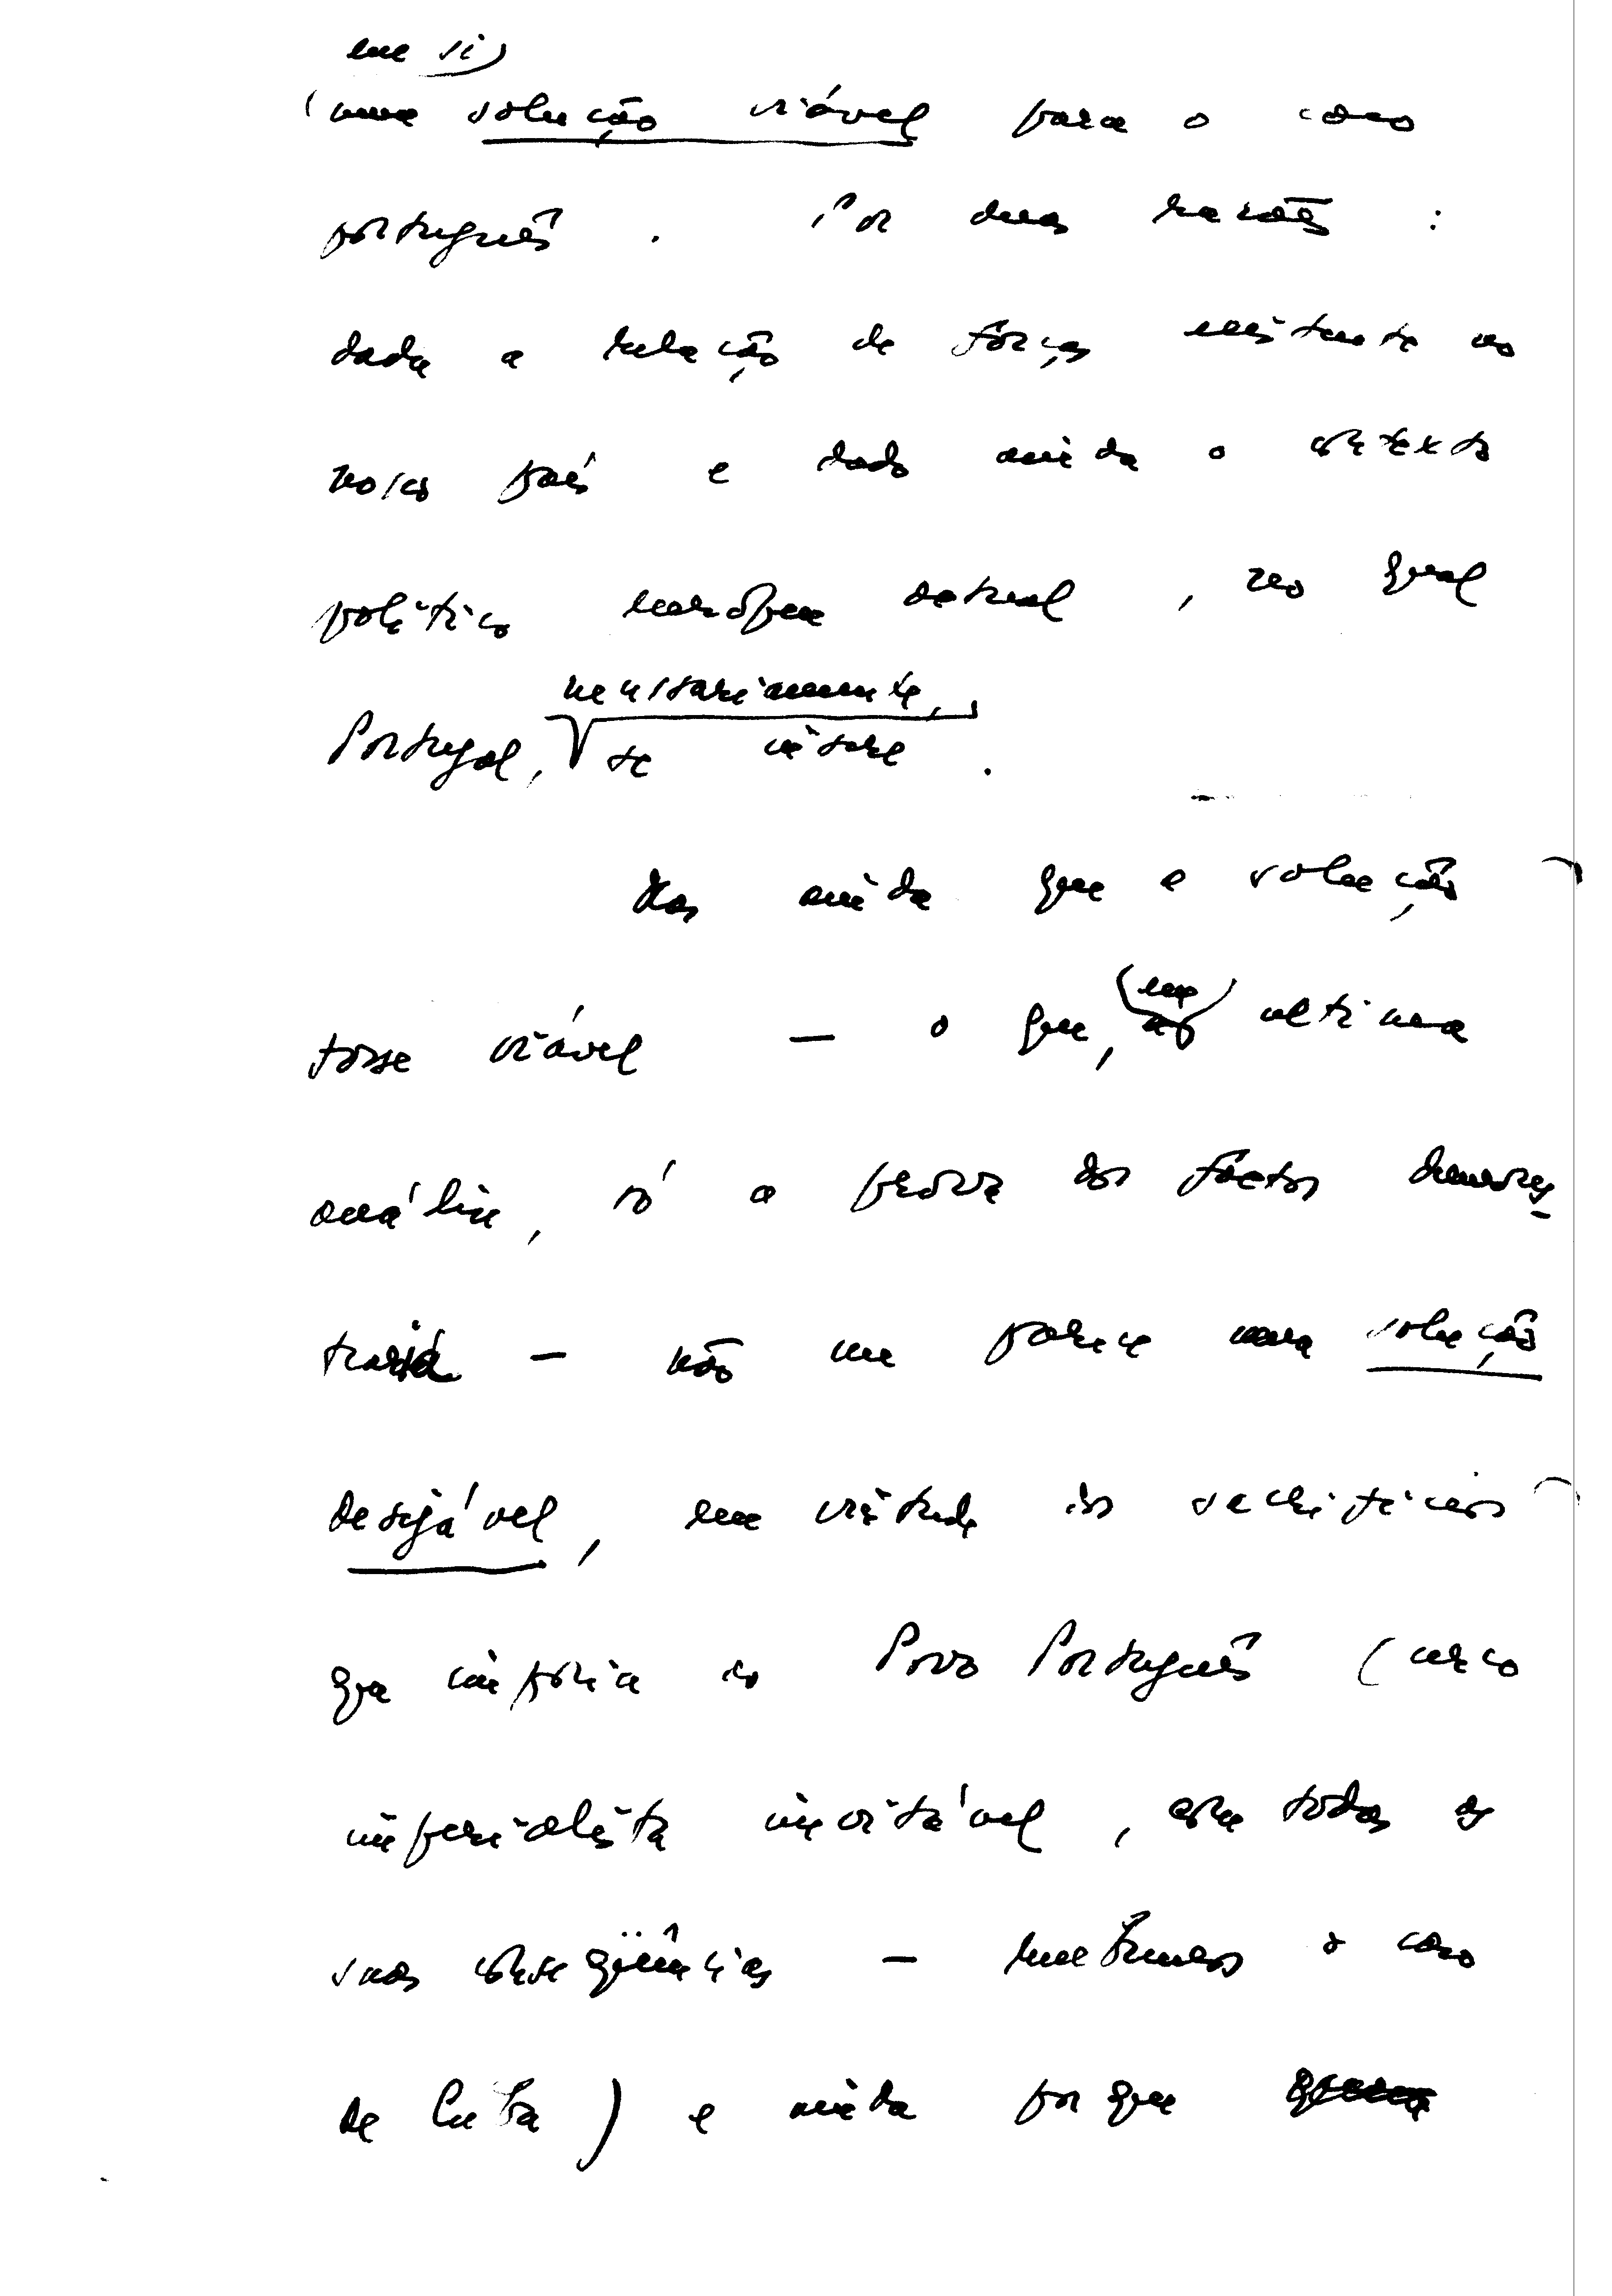 em si)
(uma solução viável para o caso
português. Por duas razões :
dada a relação de forças existente no
nosso país e dado ainda o contexto
político europeu actual, no qual
necessariamente,
Portugal, se insere.
Mas ainda que a solução
(em)
fosse viável — o que, última
análise, só a prova dos factos demons-
traria — não me parece uma solução
desejável, em virtude dos sacrifícios
que imporia ao Povo Português (cerco
imperialista inevitável, com todas as
suas conseqüências — lembremos o caso
de Cuba) e ainda porque